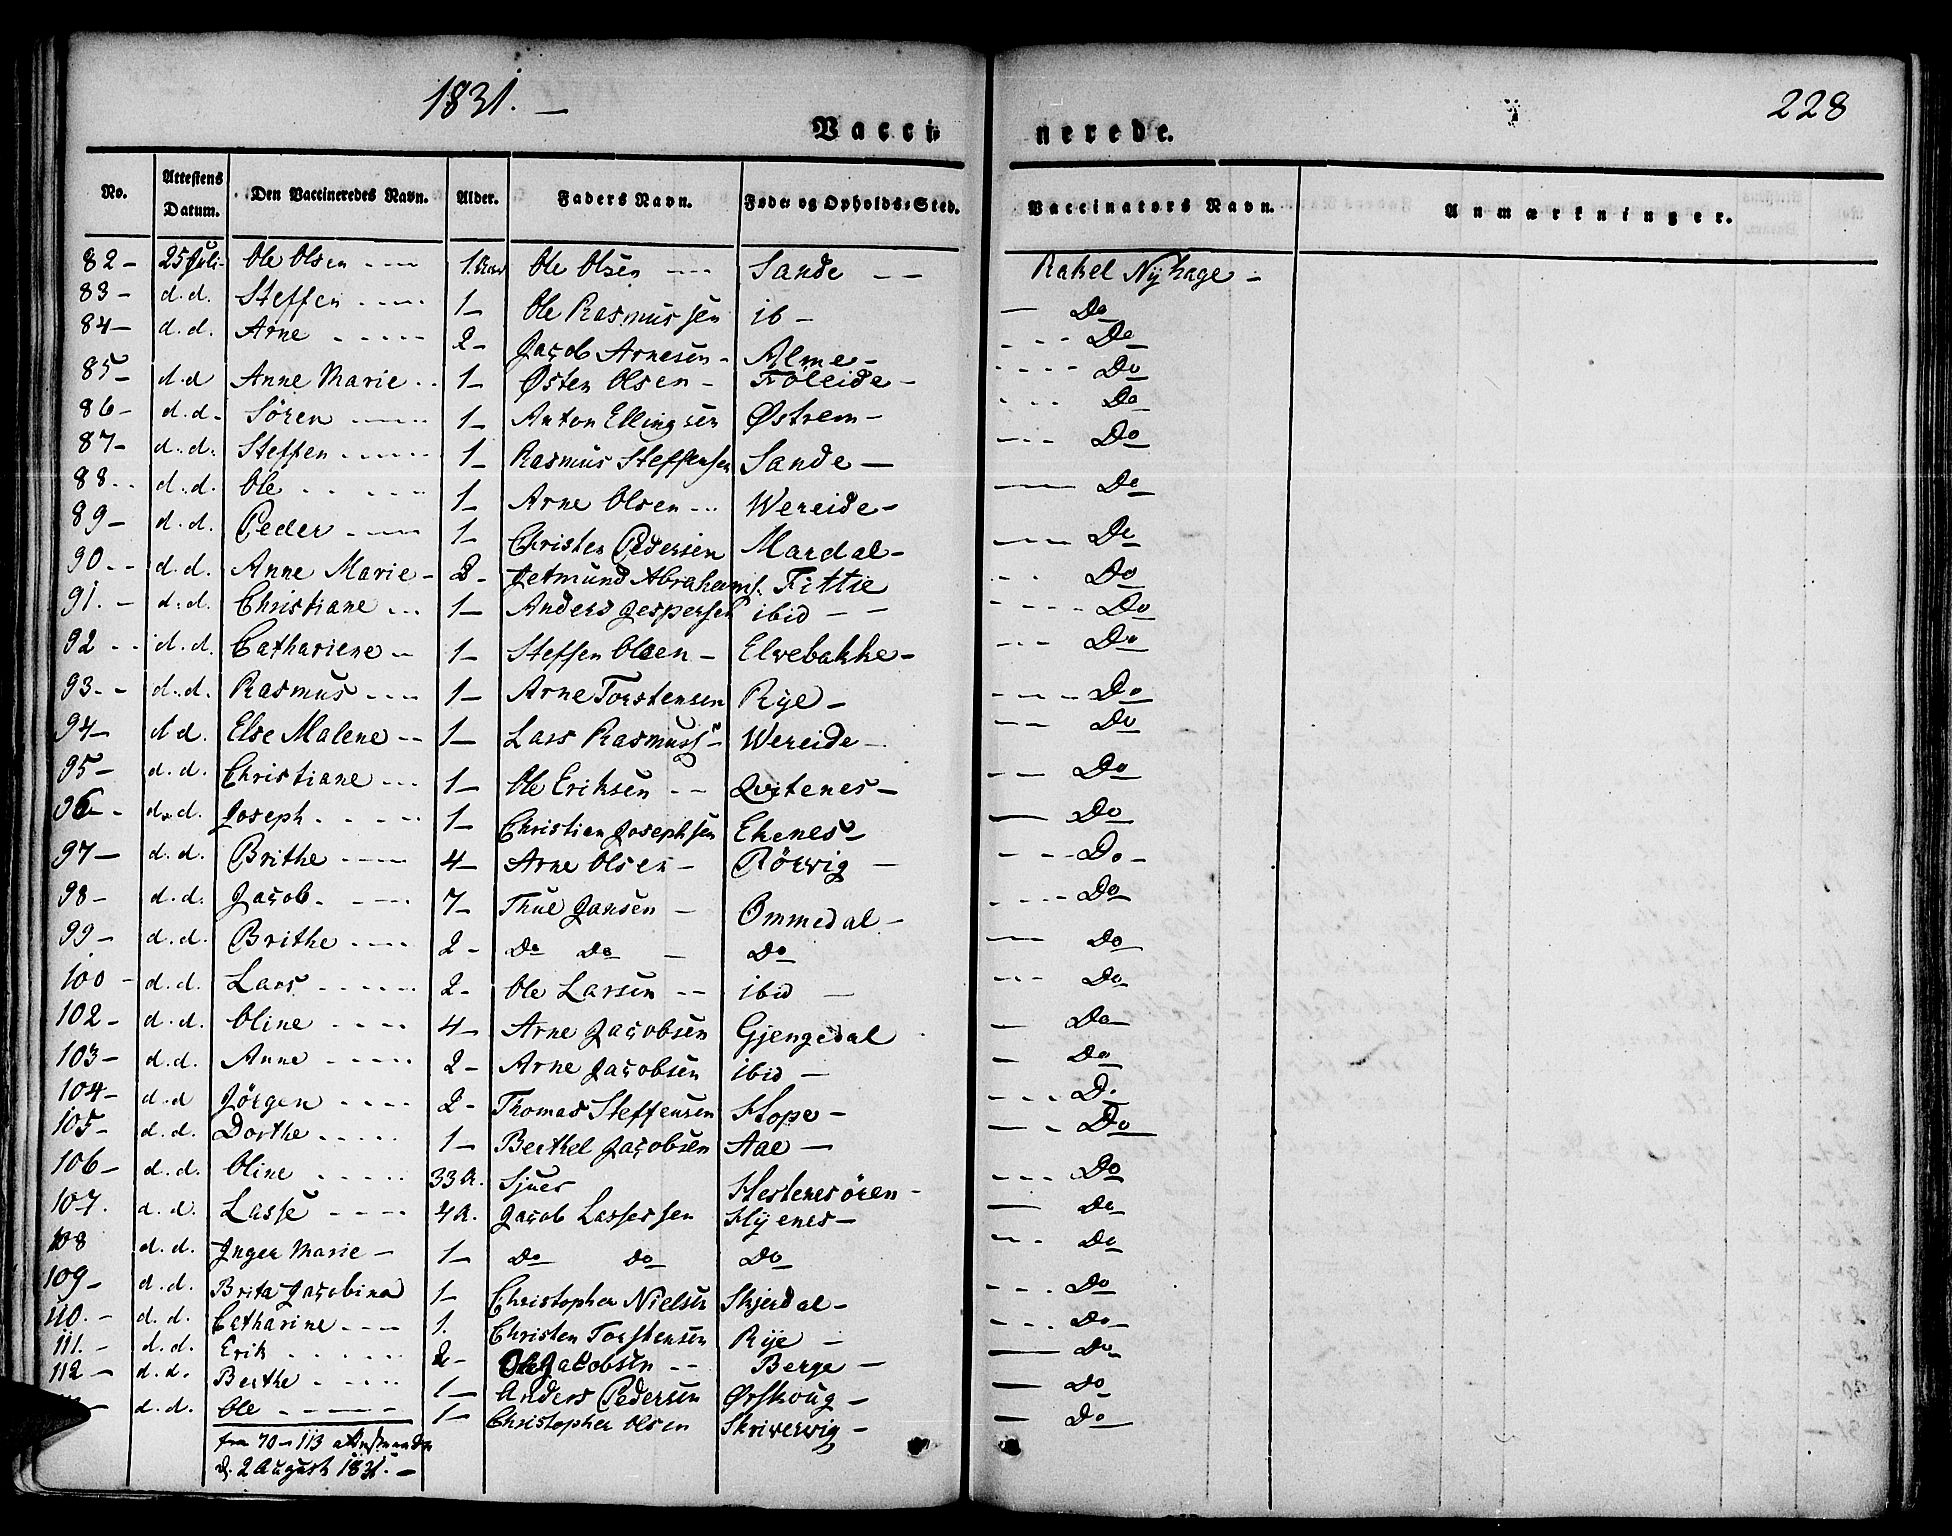 1831. —
228
Vaccinerede.
No. Attestens Datum. Den Vaccineredes Navn. Alder. Faders Navn. Føde- og Opholds-Sted. Vaccinators Navn. Anmærkninger.
82 - 25 Juli - Ole Olsen - - - - 1. Aar Ole Olsen - - - Sande - - Rakel Nÿhage -
83 - d. d. Steffen - - - - 1 - Ole Rasmussen ib - — Do
84 - d. d. Arne - - - - - 2 - Jacob Arnesen - Alme - - - - Do
85 - d. d Anne Marie - - 1 - Østen Olsen - Föleide - - - - - Do
86 - d. d. Sören - - - - 1 - Anton Ellingsen Østrem - - - - Do
87 - d. d. Steffen - - - - - 1 - Rasmus Steffensen Sande — - - - Do
88 - - d. d. Ole - - - - - 1 - Arne Olsen - - - Wereide - — Do
89 - d. d. Peder - - - - 1 - Christen Pedersen Mardal - - - - Do
90 - - d. d. Anne Marie - 2 - Jetmund Abrahams. Fittie - - Do
91. - d. d. Christiane - - - 1 - Anders Jespersen ibid - - - - - - Do
92 - - d. d. Cathariene - - 1 - Steffen Olsen - Elvebakke - - - - Do
93 - - d. d. Rasmus - - - - 1 - Arne Torstensen Rÿe - - - - - Do
94 - d d. Else Malene - - 1 - Lars Rasmuss - Wereide - - - Do
95 - d. d. Christiane - - - 1 - Ole Eriksen - - Qvitenes - - - Do
96 - - d. d. Joseph - - - - - 1 - Christian Josephsen Ekenes - — Do
97 - d. d. Brithe - - - - 4 - Arne Olsen - Rörvig — - - - Do -
98 - d. d. Jacob - - - - 7 - Thue Jansen - Ommedal - - - - - Do
99 - d. d. Brithe - - - - 2 - Do Do - Do — Do
100 - d. d. Lars - - - - - - 2 - Ole Larsen - - ibid — - - - Do
102 - d. d. Oline - - - - 4 - Arne Jacobsen Gjengedal — Do
103 - d. d. Anne - - - - - 2 - Arne Jacobsen ibid — — Do
104 - d. d Jörgen - - - - 2 - Thomas Steffensen Hope - - - - Do
105 - d. d. Dorthe - - - - - 1 - Berthel Jacobsen Aae — — - Do
106 - d. d. Oline - - - - - 33 A. Sjuer Hestenesören - - - - Do
107. d. d. Lasse - - - - 4 A. Jacob Lassessen Hÿenes - — Do
108 d. d. Inger Marie - 1 - Do Do Do - - - Do
109 - d. d. Brita Jacobina 1 - Christopher Nielsen Skjerdal - - - - Do
110. - d. d. Catharine - - - - 1. Christen Torstensen Rÿe - - - - Do
111. - d. d. Erik - - - - - - 2 - Ole Jacobsen - - Berge - — Do
112 - d. d. Berthe - - - - - 1 - Anders Pedersen Ørskoug - — Do
- d. d. Ole - - - - - 1 - Christopher Olsen Skrivervig - — Do
fra 70 - 113
d. 2 August 1831. -